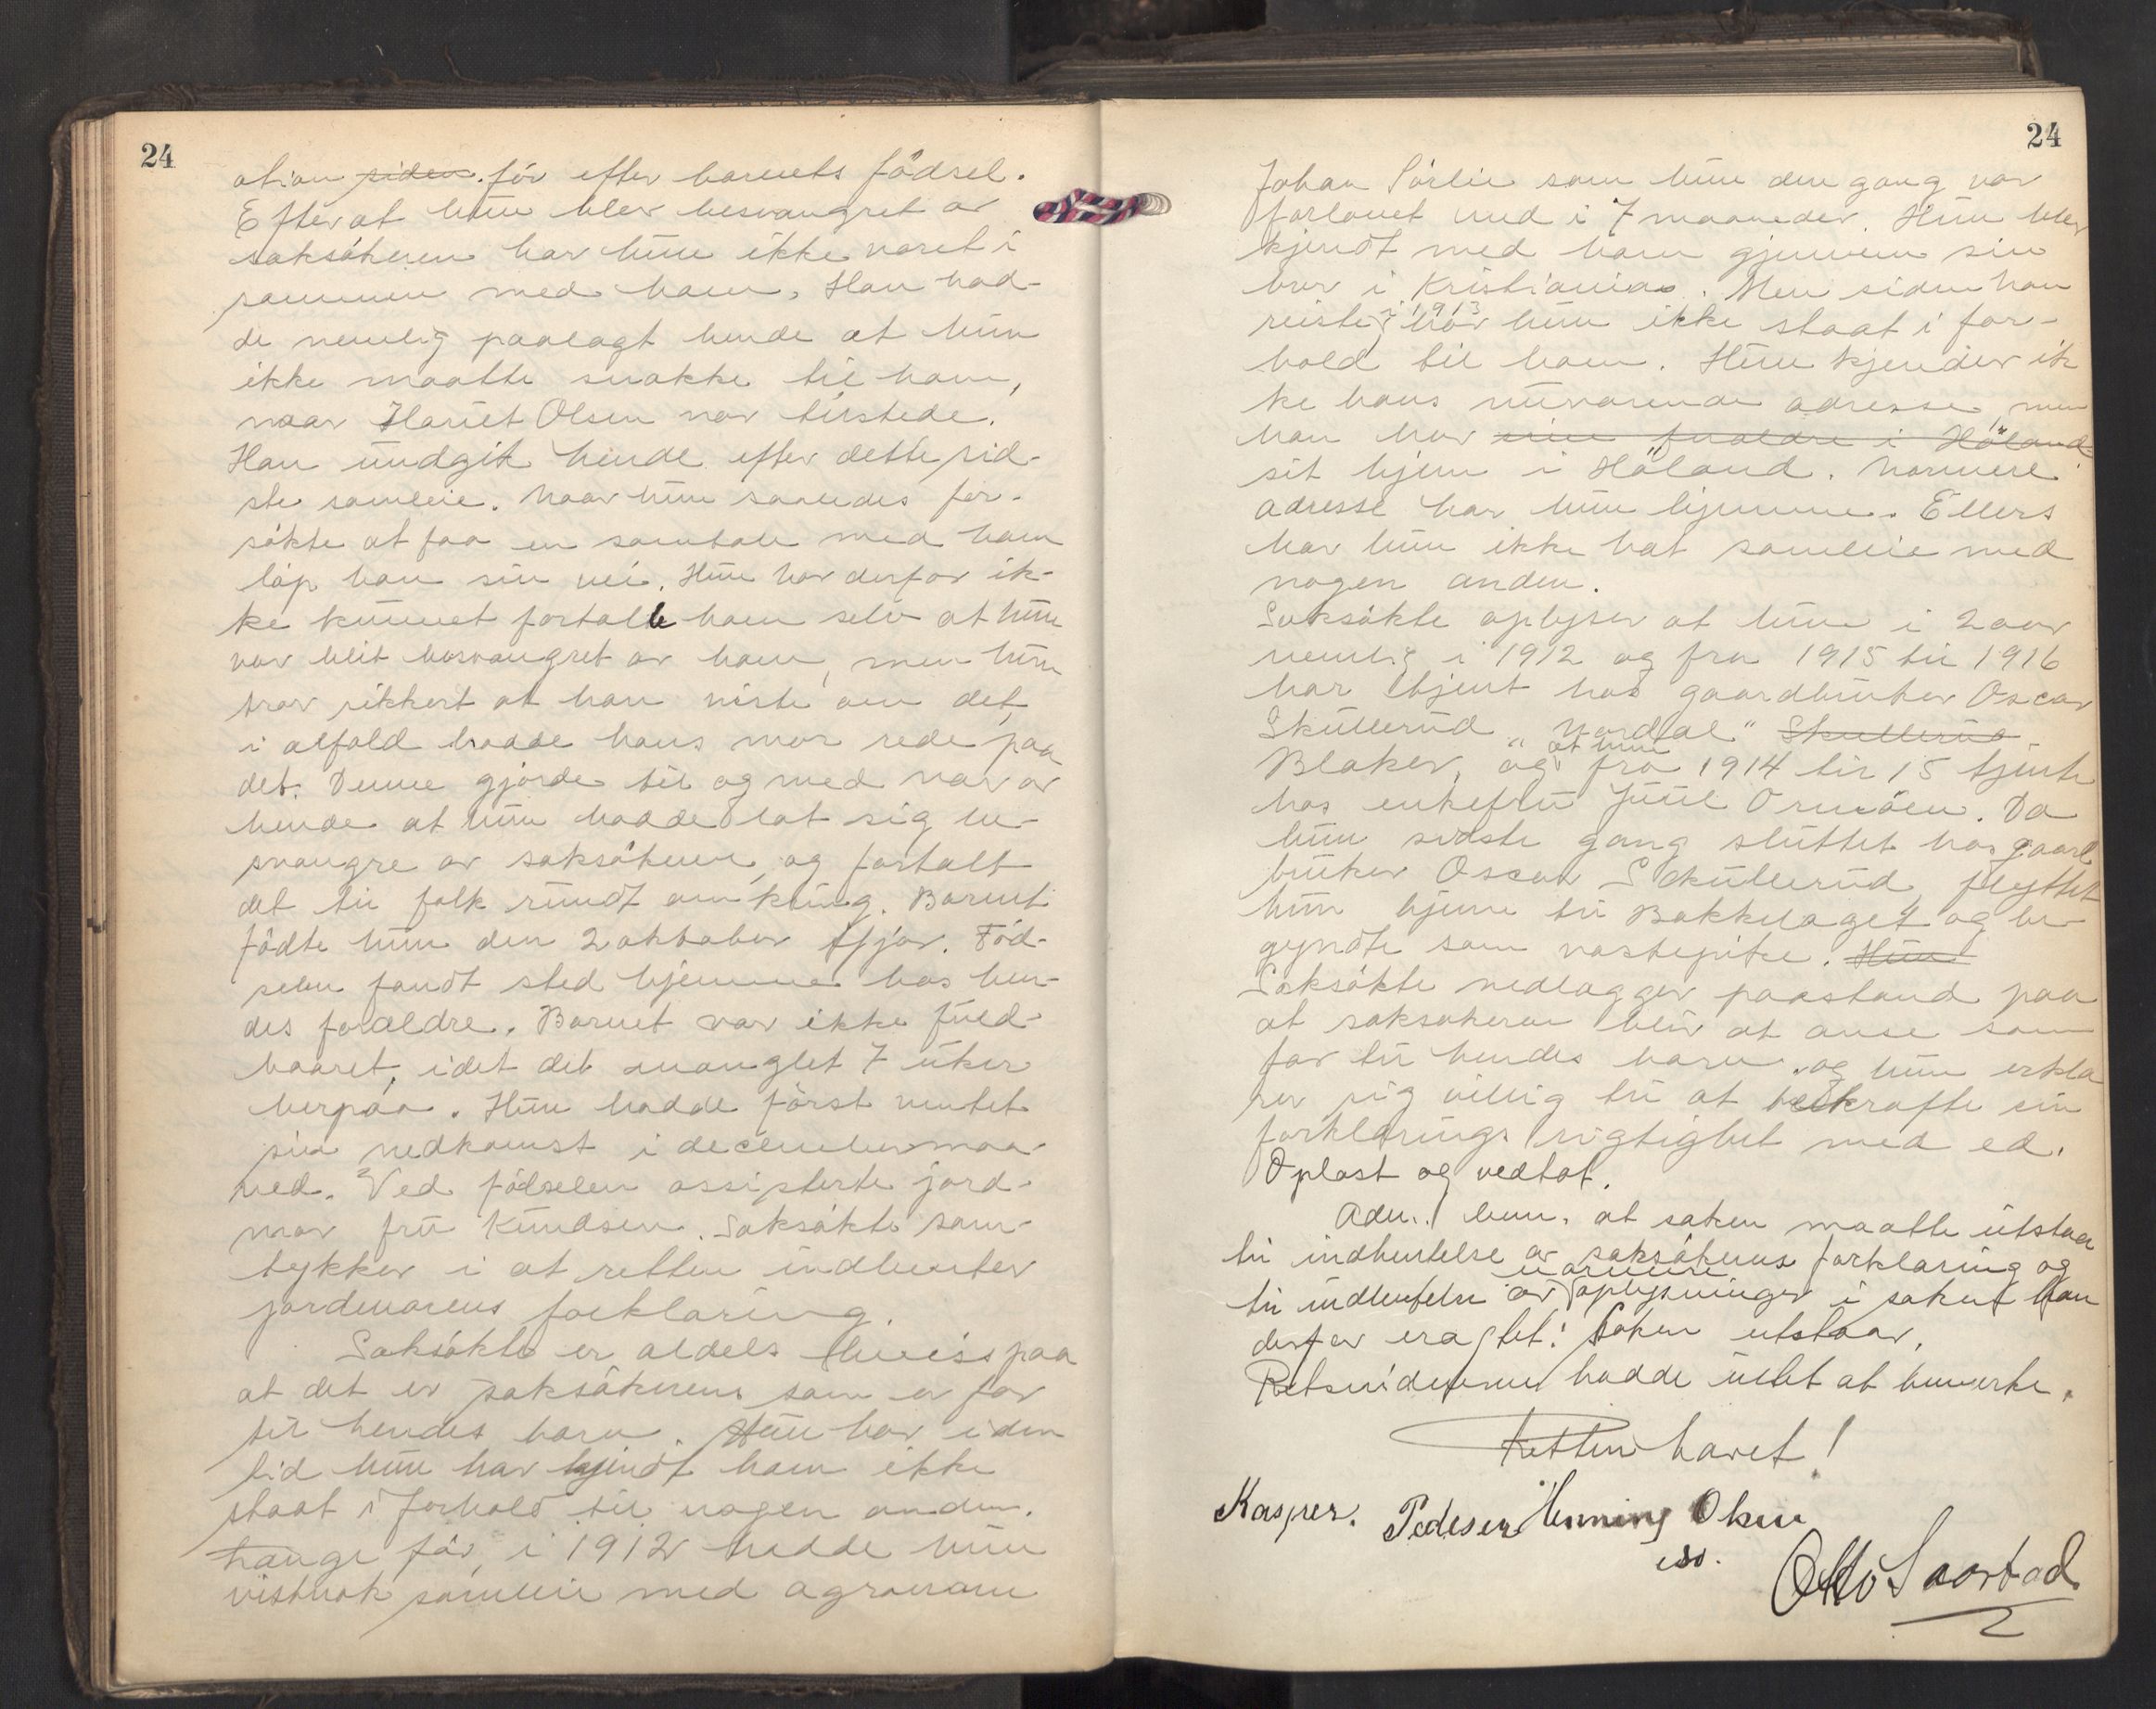 24
ation siden. før efter barnets fødsel.
Efter at hun blev besvangret av
saksøkeren har hun ikke været i
sammen med ham. Han had-
de nemlig paalagt hende at hun
ikke maatte snakke til ham,
naar Hariet Olsen var tilstede.
Han undgik hende efter dette sid-
ste samleie. Naar hun saaledes for-
søkte at faa en samtale med ham
løp han sin vei. Hun har derfor ik-
ke kunnet fortalle ham selv at hun
var blit besvangret av ham, men hun
tror sikkert at han viste om det,
i alfald hadde hans mor rede paa
det. Denne gjorde til og med nar av
hende at hun hadde lat sig be-
svangre av saksøkeren, og fortalt
det til folk rundt omkring. Barnet
fødte hun den 2 oktober ifjor. Fød-
selen fandt sted hjemme hos hen-
des forældre. Barnet var ikke fuld-
baaret, idet det manglet 7 uker
herpaa. Hun hadde først ventet
sin nedkomst i december maa-
ned. Ved fødselen assisterte jord-
mor fru Knudsen. Saksøkte sam-
tykker i at retten indhenter
jordmorens forklaring.
Saksøkte er aldels sikker paa
at det er saksøkeren som er far
til hendes barn. Hun har i den
tid hun har kjendt ham ikke
staat i forhold til nogen anden.
Længe før, i 1912 hadde hun
vistnok samleie med agronom
24
Johan Sørlie som hun den gang var
forlovet med i 7 maaneder. Hun blev
kjendt med ham gjennem sin
bror i Kristiania. Men siden han
i 1913
reiste har hun ikke staat i for-
hold til ham. Hun kjender ik
ke hans nuværende adresse, men
han har sine forældre i Høland
sit hjem i Høland. Nærmere
adresse har hun hjemme. Ellers
har hun ikke hat samleie med
nogen anden.
Saksøkte oplyser at hun i 2 aar
nemlig i 1912 og fra 1915 til 1916
har tjent hos gaardbruker Oscar
Skullerud "Nordal" Skullerud
at hun
Blaker, og fra 1914 til 15 tjente
hos enkefru Juul Ormøen. Da
hun sidste gang sluttet hos gaard
bruker Oscar Skullerud flyttet
hun hjem til Bakkelaget og be-
gyndte som vaskepike. Hun
Saksøkte nedlægger paastand paa
at saksøkeren blir at anse som
far til hendes barn, og hun erklæ
rer sig villig til at bekræfte sin
forklarings rigtighet med ed.
Oplæst og vedtat.
Adm. bem. at saken maatte utstaa
til indhentelse av saksøkerens forklaring og
nærmere
til indhentelse av oplysninger i saken. Han
derfor eragtet: Saken utstaar.
Retsvidnerne hadde intet at bemerke.
Retten hævet!
Kasper. Pedersen Henning Olsen
Otto Saastad